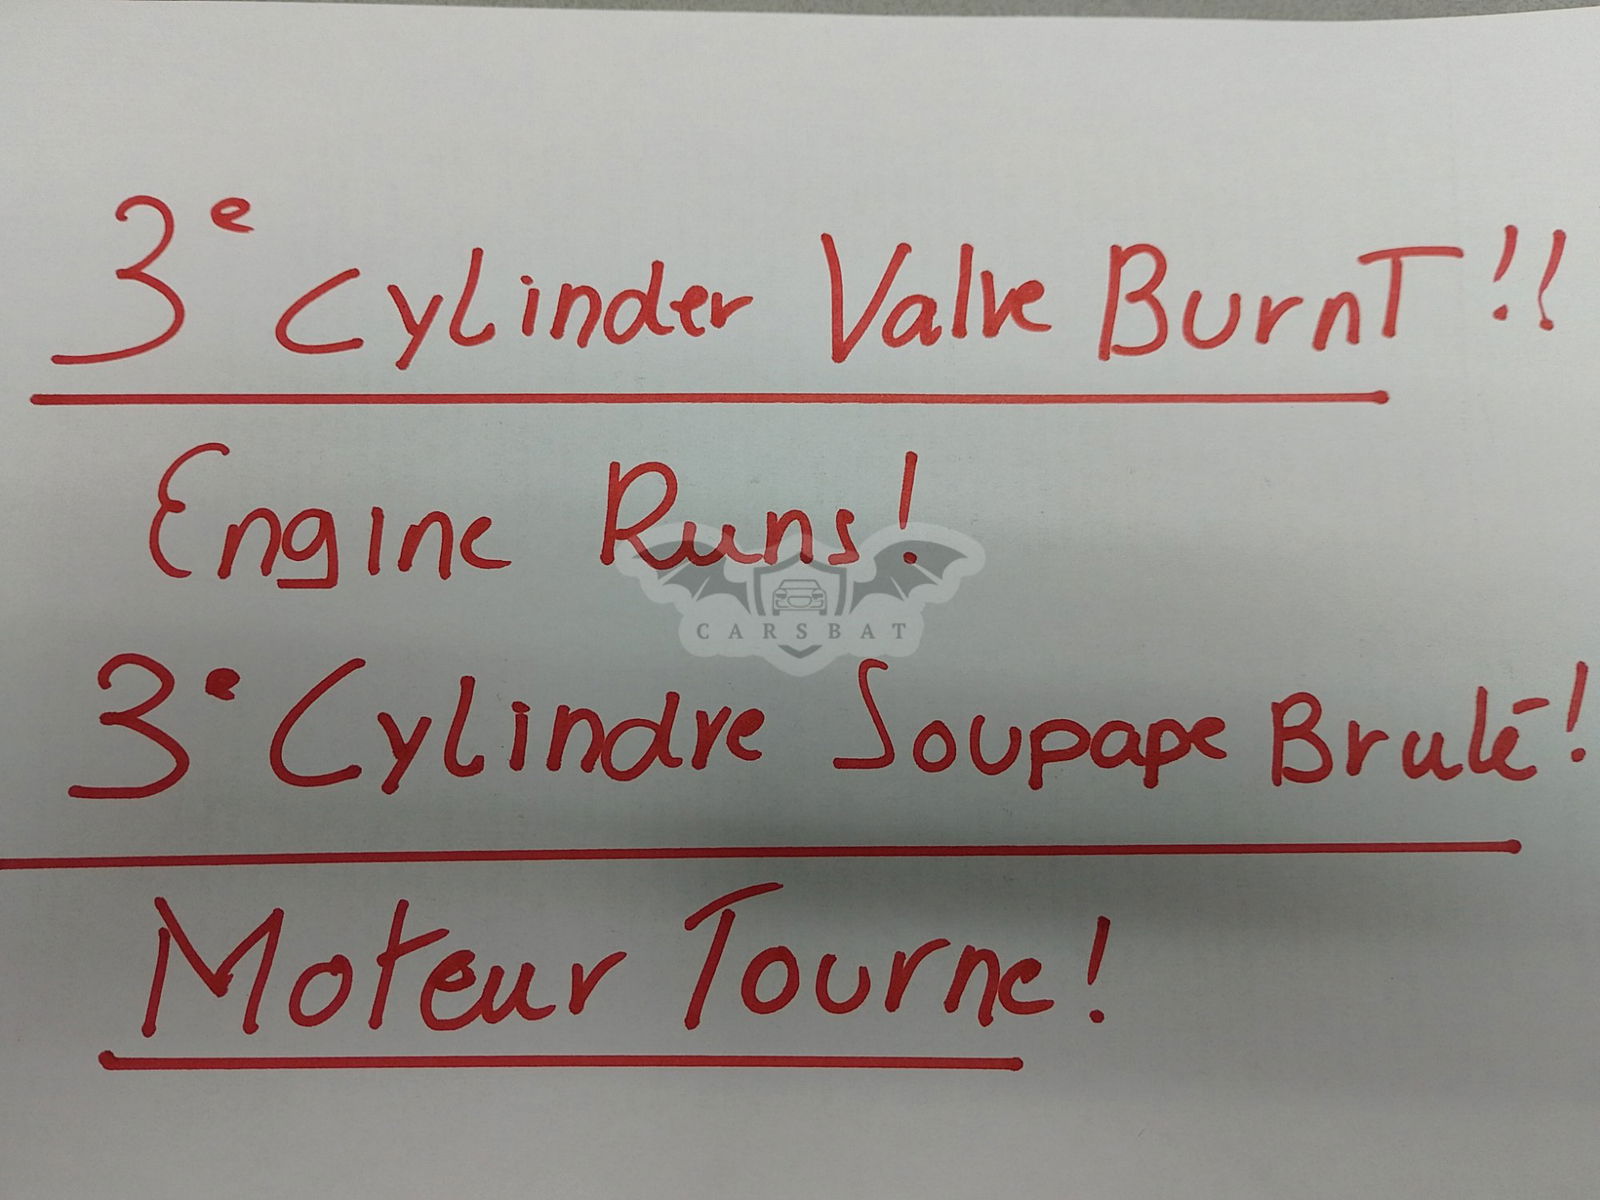 3e Cylinder Valve BurnT!!
Engine Runs!
CARSBAT
3e Cylindre Soupape Brulé!
Moteur Tourne!